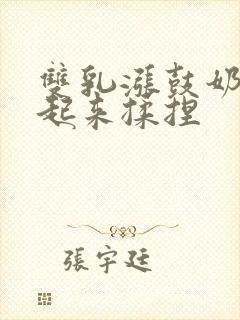 雙乳漲鼓奶
起來揉捏
張宇廷